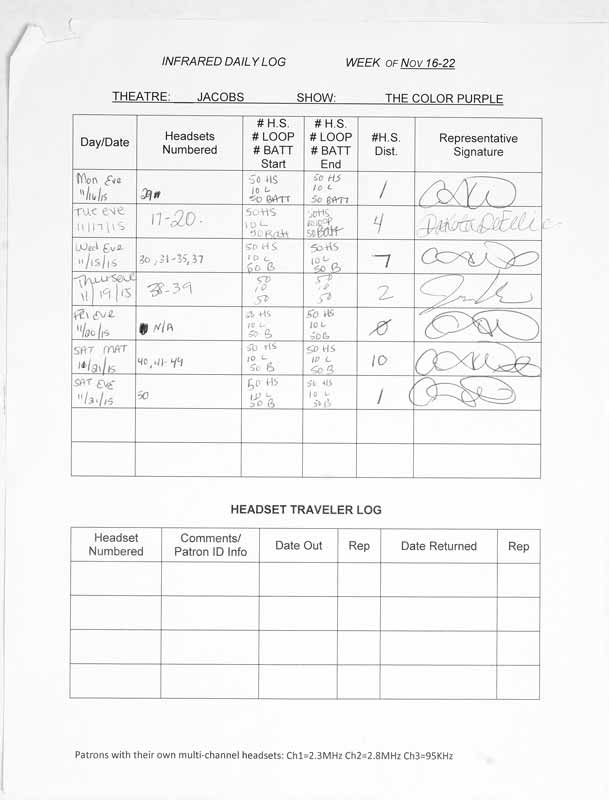 INFRARED DAILY LOG WEEK OF NOV 16-22
THEATRE: JACOBS SHOW: THE COLOR PURPLE
Day/Date Headsets Numbered # H.S. # LOOP # BATT Start # H.S. # LOOP # BATT End #H.S. Dist. Representative Signature
Mon Eve 11/16/15 29# 50 HS 10 L 50 BATT 50 HS 10 L 50 BATT 1
Tue eve 11/17/15 17-20. 50HS 10L 50 Batt 50HS 50 Batt 4
Wed Eve 11/15/15 30, 31-35, 37 50 HS 10 L 50 B 50 HS 10 L 50 B 7
Thurseve 11/19/15 38-39 50 10 50 50 10 50 2
FRI EVE 11/20/15 N/A 50 HS 10 L 50 B 50 HS 10 L 50B 0
SAT MAT 11/21/15 40, 41-49 50 HS 10 L 50 B 50 HS 10 L 50 B 10
SAT EVE 11/21/15 50 50 HS 10 L 50 B 50 HS 10 L 50B 1
HEADSET TRAVELER LOG
Headset Numbered Comments/ Patron ID Info Date Out Rep Date Returned Rep
Patrons with their own multi-channel headsets: Ch1=2.3MHz Ch2=2.8MHz Ch3=95KHz